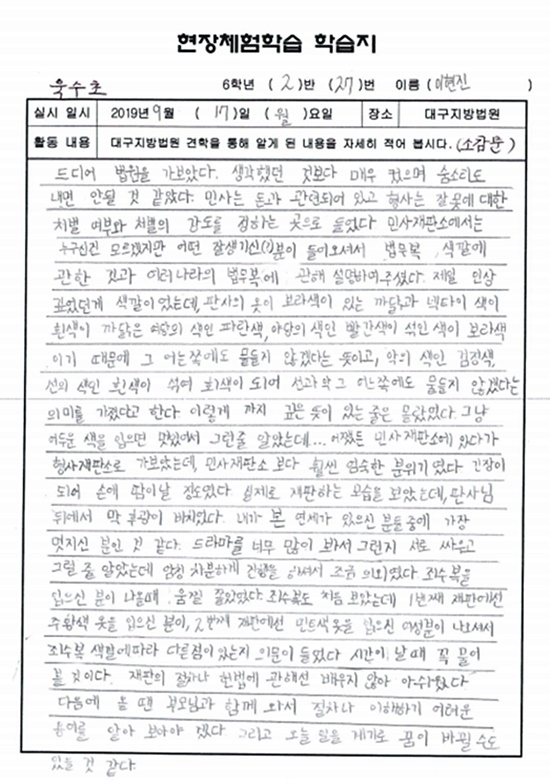 현장체험학습 학습지
욱수초 6학년 ( 2 )반 ( 27 )번 이름 ( 이현진 )
실시 일시 2019년 9월 ( 17 )일 ( 월 )요일 장소 대구지방법원
활동 내용 대구지방법원 견학을 통해 알게 된 내용을 자세히 적어 봅시다. (소감문)
드디어 법원을 가보았다. 생각했던 것보다 매우 컸으며 숨소리도
내면 안될 것 같았다. 민사는 돈과 관련되어 있고 형사는 잘못에 대한
처벌 여부와 처벌의 강도를 정하는 곳으로 들었다 민사재판소에서는
누구신진 모르겠지만 어떤 잘생기신(?)분이 들어오셔서 법무복, 색깔에
관한 것과 여러나라의 법무복에 관해 설명하여주셨다. 제일 인상
깊었던게 색깔이었는데, 판사의 옷이 보라색이 있는 까닭과 넥타이 색이
흰색이 까닭은 여당의 색인 파란색, 야당의 색인 빨간색이 섞인 색이 보라색
이기 때문에 그 어느쪽에도 물들지 않겠다는 뜻이고, 악의 색인 검정색,
선의 색인 흰색이 섞여 회색이 되어 선과 악 그 어느쪽에도 물들지 않겠다는
의미를 가졌다고 한다 이렇게 까지 깊은 뜻이 있는 줄은 몰랐었다. 그냥
어두운 색을 입으면 멋있어서 그런줄 알았는데... 어쨌든 민사재판소에 있다가
형사재판소로 가보았는데, 민사재판소 보다 훨씬 엄숙한 분위기였다 긴장이
되어 손에 땀이날 정도였다. 실제로 재판하는 모습을 보았는데, 판사님
뒤에서 막 후광이 비치었다. 내가 본 연세가 있으신 분들중에 가장
멋지신 분인 것 같다. 드라마를 너무 많이 봐서 그런지 서로 싸우고
그럴 줄 알았는데 엄청 차분하게 진행을 하셔서 조금 의외였다 죄수복을
입으신 분이 나올때 움찔 쫄았었다 죄수복도 처음 보았는데 1번째 재판에선
주황색 옷을 입으신 분이, 2번째 재판에선 민트색 옷을 입으신 여성분이 나오셔서
죄수복 색깔에따라 다른점이 있는지 의문이 들었다 시간이 날 때 꼭 물어
볼 것이다. 재판의 절차나 헌법에 관해선 배우지 않아 아쉬웠다
다음에 올 땐 부모님과 함께 와서 절차나 이해하기 어려운
용어를 알아 보아야 겠다. 그리고 오늘 일을 계기로 꿈이 바뀔 수도
있을 것 같다.